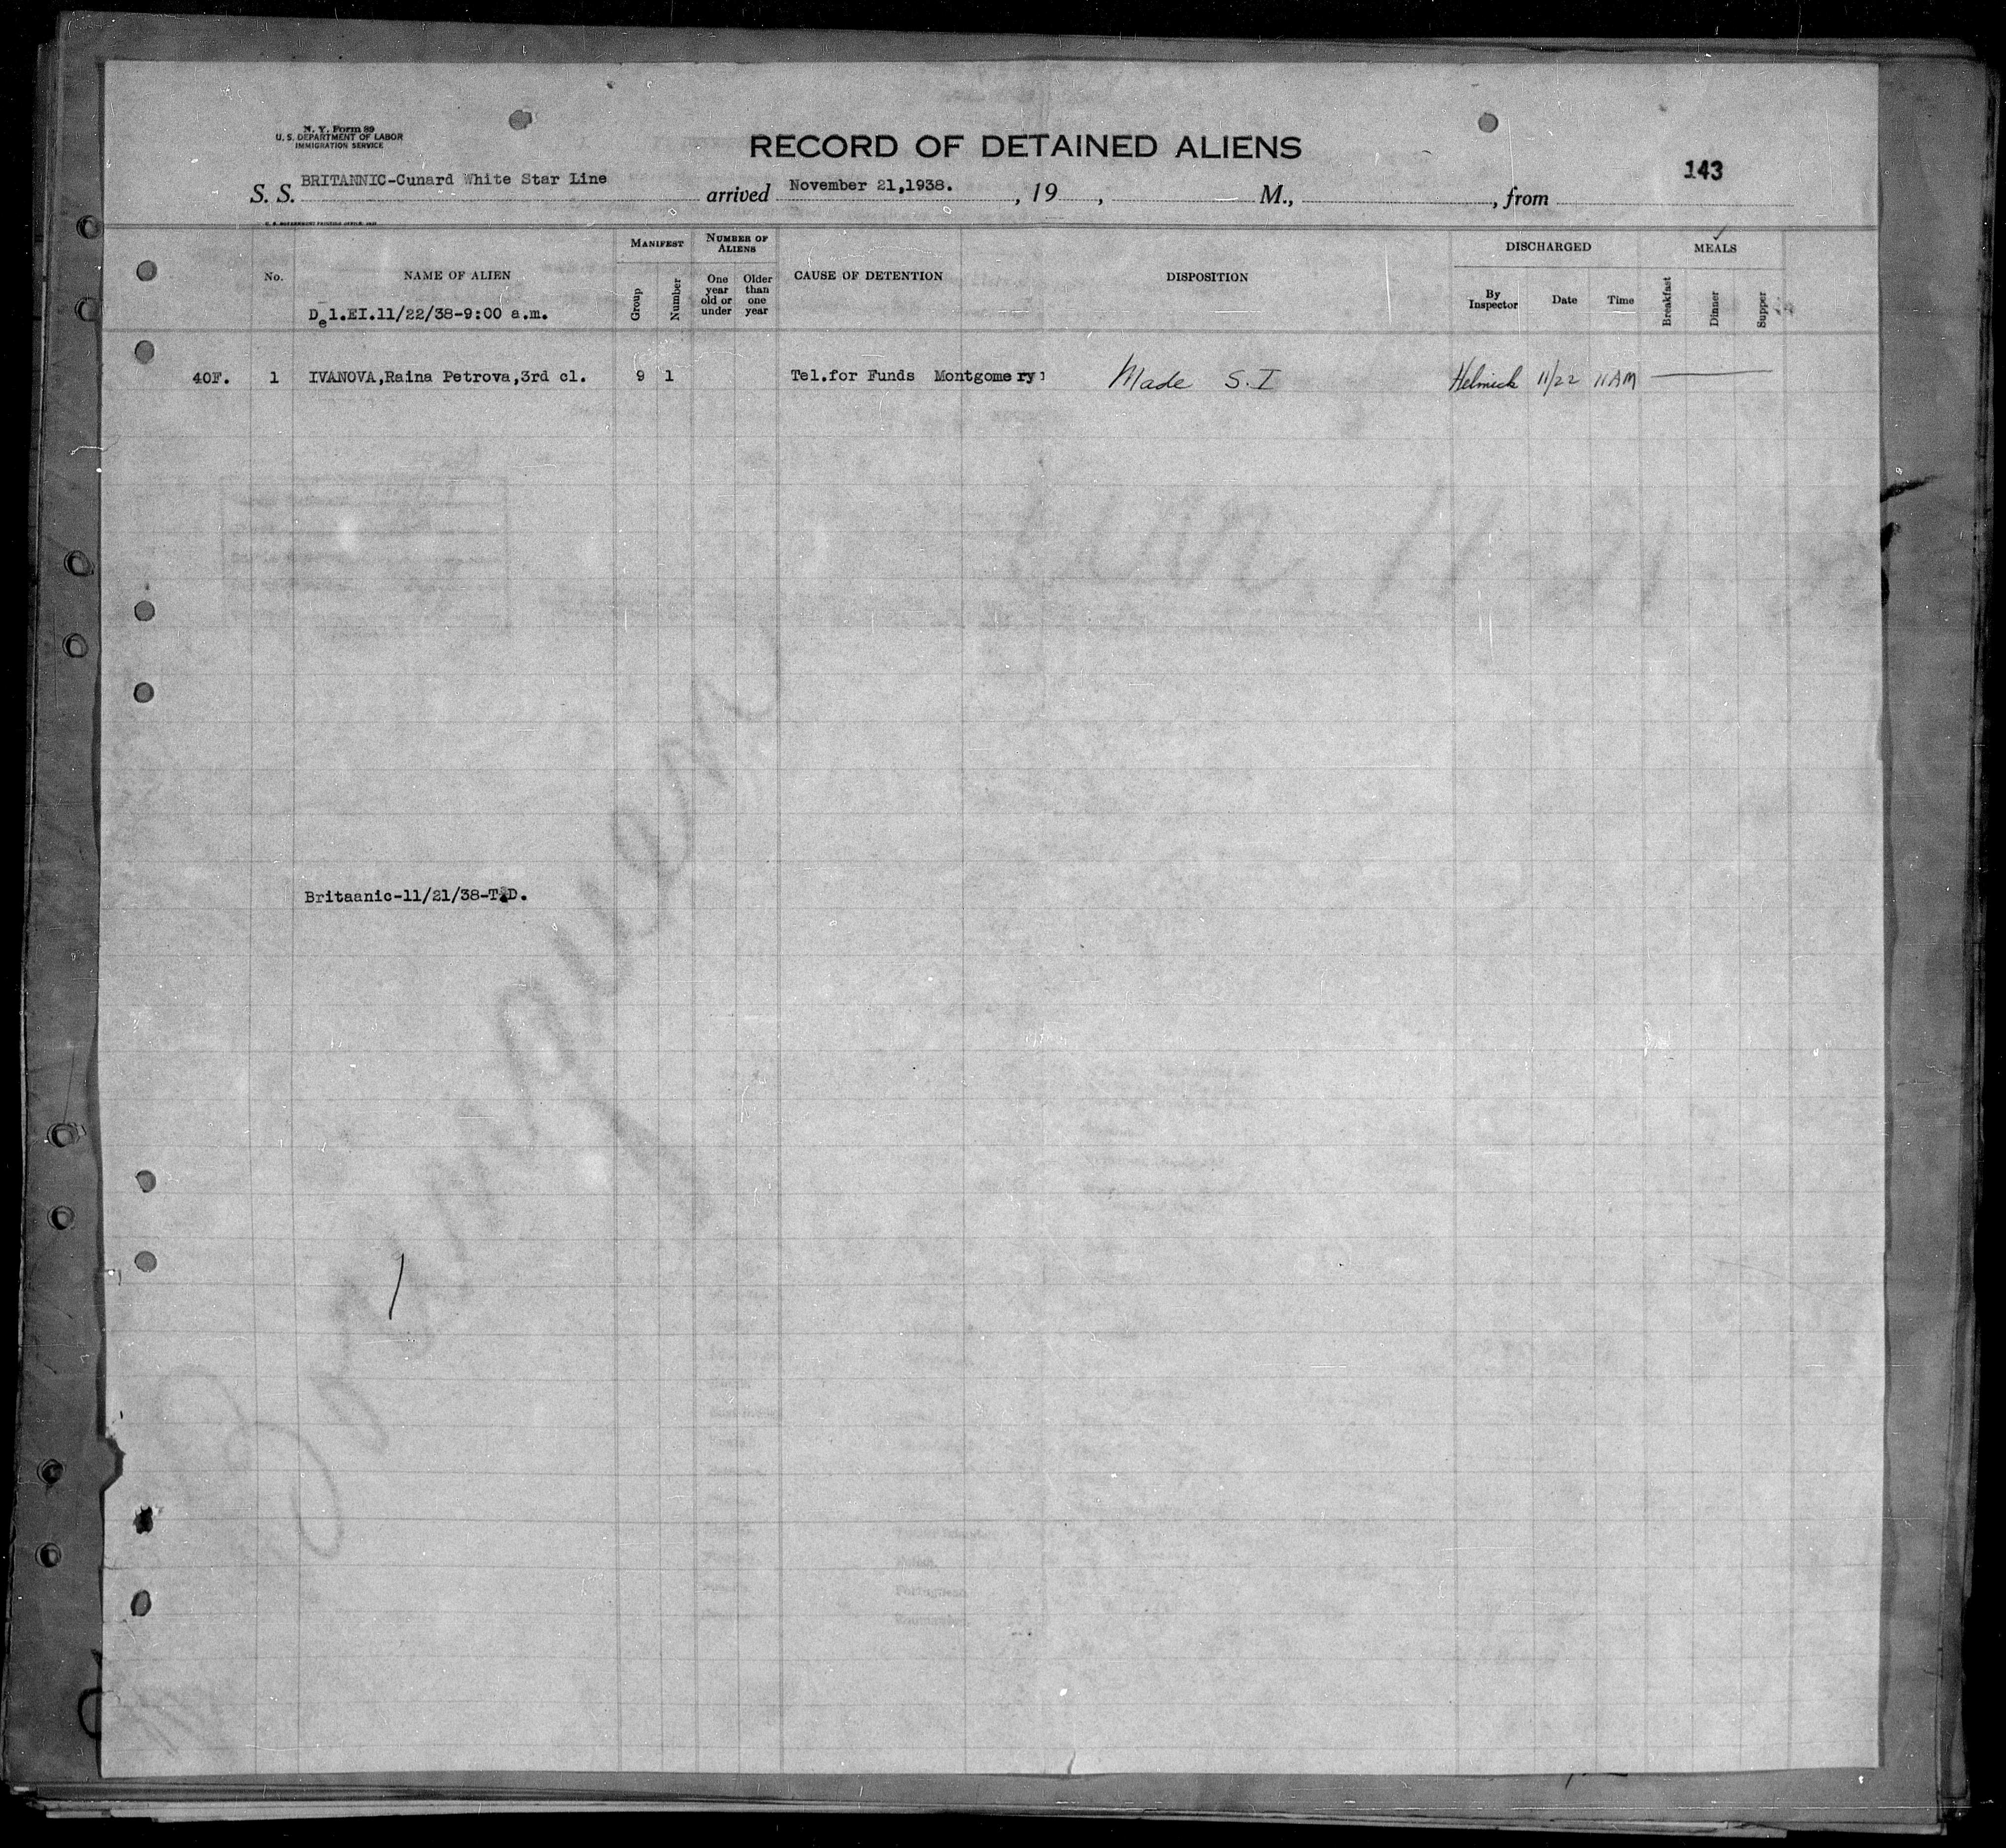 N. Y. Form 89
U. S. DEPARTMENT OF LABOR
IMMIGRATION SERVICE
RECORD OF DETAINED ALIENS
143
S. S. BRITANNIC-Cunard White Star Line arrived November 21,1938. , 19 , M., , from
No. NAME OF ALIEN MANIFEST Group Number NUMBER OF ALIENS One year old or under Older than one year CAUSE OF DETENTION DISPOSITION DISCHARGED By Inspector Date Time MEALS Breakfast Dinner Supper
Del.EI.11/22/38-9:00 a.m.
40F. 1 IVANOVA,Raina Petrova,3rd cl. 9 1 Tel.for Funds Montgomery Made S.I Helmick 11/22 11 AM
Britaanic-11/21/38-T&D.